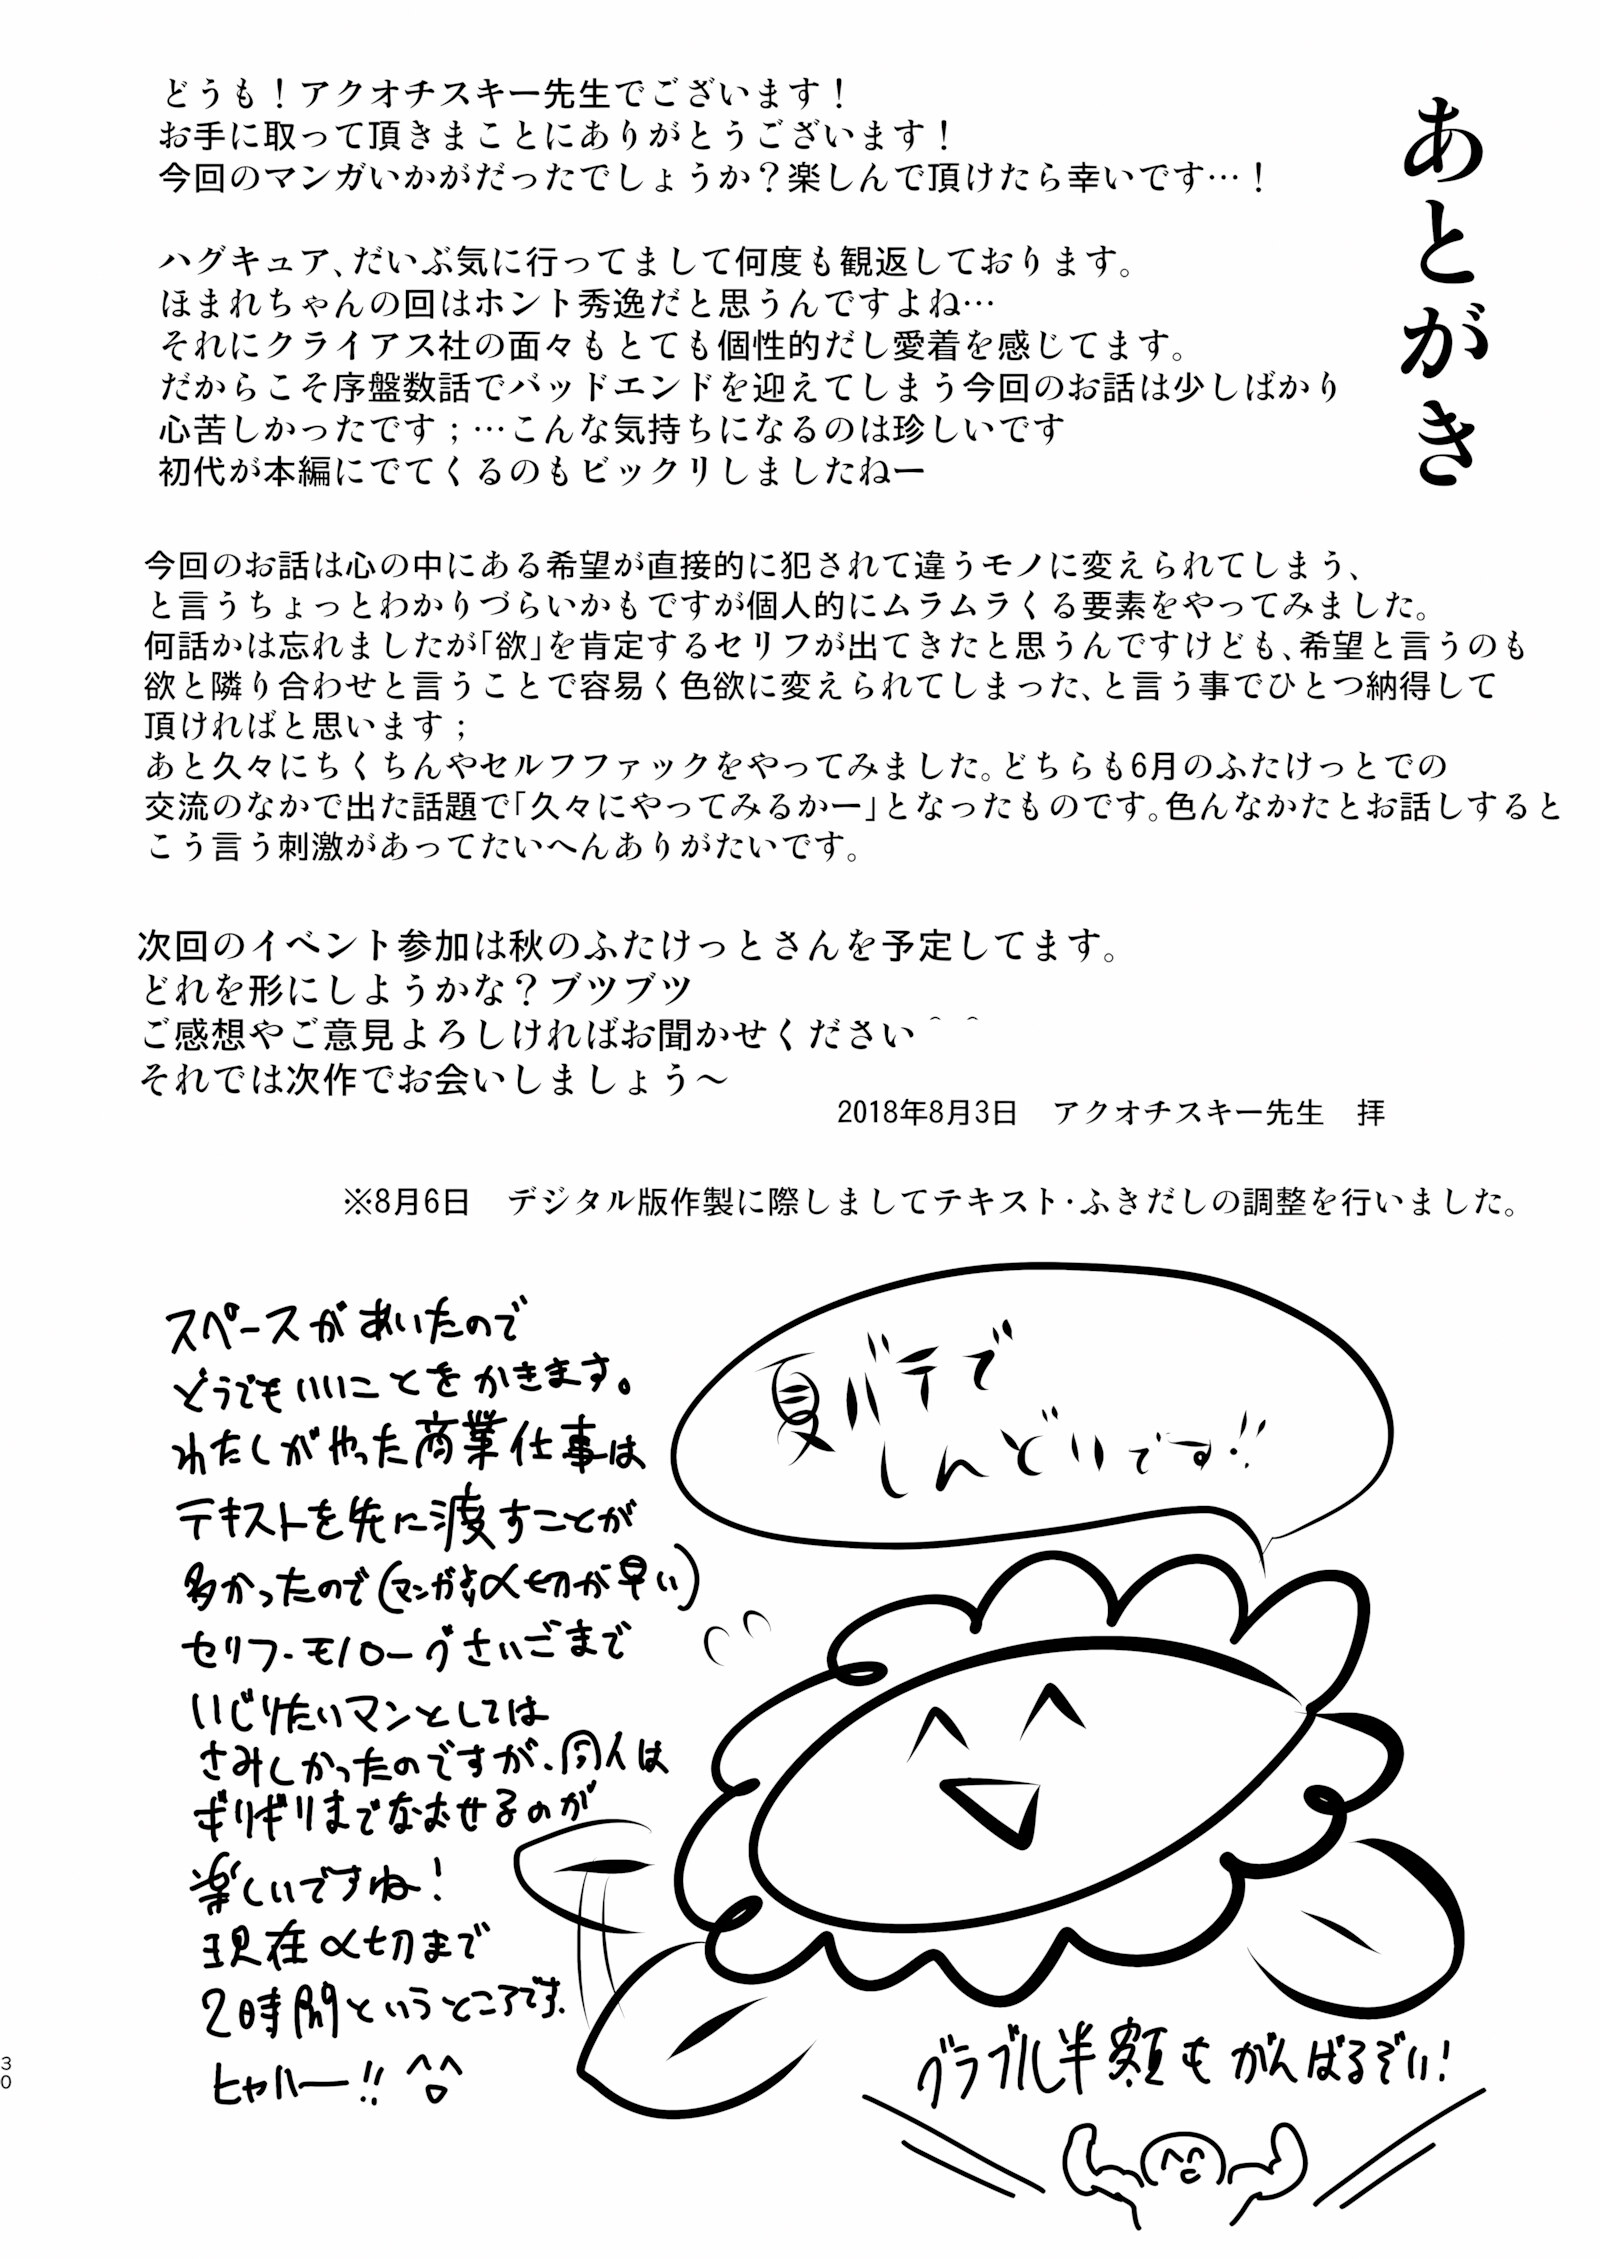 あとがき
どうも！アクオチスキー先生でございます！
お手に取って頂きまことにありがとうございます！
今回のマンガいかがだったでしょうか？楽しんで頂けたら幸いです…！
ハグキュア、だいぶ気に行ってまして何度も観返しております。
ほまれちゃんの回はホント秀逸だと思うんですよね…
それにクライアス社の面々もとても個性的だし愛着を感じてます。
だからこそ序盤数話でバッドエンドを迎えてしまう今回のお話は少しばかり
心苦しかったです；…こんな気持ちになるのは珍しいです
初代が本編にでてくるのもビックリしましたねー
今回のお話は心の中にある希望が直接的に犯されて違うモノに変えられてしまう、
と言うちょっとわかりづらいかもですが個人的にムラムラくる要素をやってみました。
何話かは忘れましたが｢欲｣を肯定するセリフが出てきたと思うんですけども、希望と言うのも
欲と隣り合わせと言うことで容易く色欲に変えられてしまった、と言う事でひとつ納得して
頂ければと思います；
あと久々にちくちんやセルフファックをやってみました。どちらも6月のふたけっとでの
交流のなかで出た話題で｢久々にやってみるかー｣となったものです。色んなかたとお話しすると
こう言う刺激があってたいへんありがたいです。
次回のイベント参加は秋のふたけっとさんを予定してます。
どれを形にしようかな？ブツブツ
ご感想やご意見よろしければお聞かせください＾＾
それでは次作でお会いしましょう～
2018年8月3日　アクオチスキー先生　拝
※8月6日　デジタル版作製に際しましてテキスト･ふきだしの調整を行いました。
夏バテで
しんどいです!!
スペースがあいたので
どうでもいいことをかきます。
わたしがやった商業仕事は
テキストを先に渡すことが
多かったので(マンガより〆切が早い)
セリフ･モノローグさいごまで
いじりたいマンとしては
さみしかったのですが、同人は
ギリギリまでなおせるのが
楽しいですね！
現在〆切まで
2時間というところです。
ヒャハー!! ^o^
グラブル半額もがんばるぞい！
30